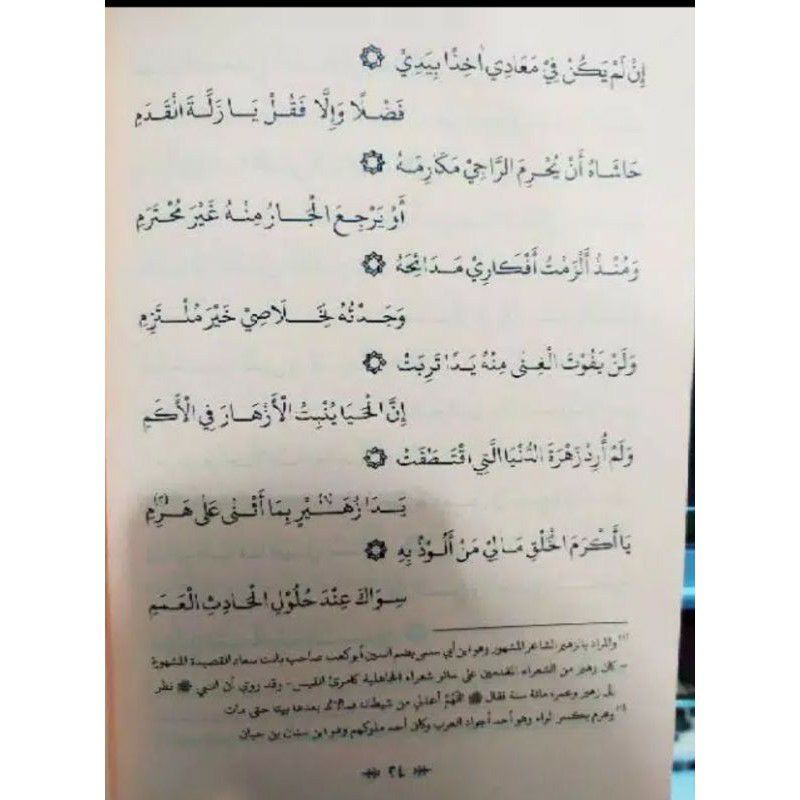 إِنْ لَمْ يَكُنْ فِيْ مَعَادِي اٰخِذًا بِيَدِيْ ۞
فَضْلًا وَإِلَّا فَقُلْ يَا زَلَّةَ الْقَدَمِ
حَاشَاهُ أَنْ يُحْرِمَ الرَّاجِيْ مَكَارِمَهُ ۞
أَوْ يَرْجِعَ الْجَارُ مِنْهُ غَيْرَ مُحْتَرَمِ
وَمُنْذُ أَلْزَمْتُ أَفْكَارِيْ مَدَائِحَهُ ۞
وَجَدْتُهُ لِخَلَاصِيْ خَيْرَ مُلْتَزِمِ
وَلَنْ يَفُوْتَ الْغِنٰى مِنْهُ يَدًا تَرِبَتْ ۞
إِنَّ الْحَيَا يُنْبِتُ الْأَزْهَارَ فِي الْأَكَمِ
وَلَمْ أُرِدْ زَهْرَةَ الدُّنْيَا الَّتِي اقْتَطَفَتْ ۞
يَدَا زُهَيْرٍ(١) بِمَا أَثْنٰى عَلٰى هَرِمِ(٢)
يَا أَكْرَمَ الْخَلْقِ مَالِيْ مَنْ أَلُوْذُ بِهِ ۞
سِوَاكَ عِنْدَ حُلُوْلِ الْحَادِثِ الْعَمَمِ
(١) والمراد بالزهير الشاعر المشهور وهو ابن أبي سلمى بضم السين أبو كعب صاحب بانت سعاد القصيدة المشهورة
كان زهير من الشعراء المقدمين على سائر شعراء الجاهلية كامرئ القيس - وقد روي أن النبي ﷺ نظر
إلى زهير وعمره مائة سنة فقال ﷺ اللهم أعذني من شيطانه بعدها بيتا حتى مات
(٢) وهرم بكسر الراء وهو أحد أجواد العرب وكان أحد ملوكهم وهو ابن سنان بن
٢٤